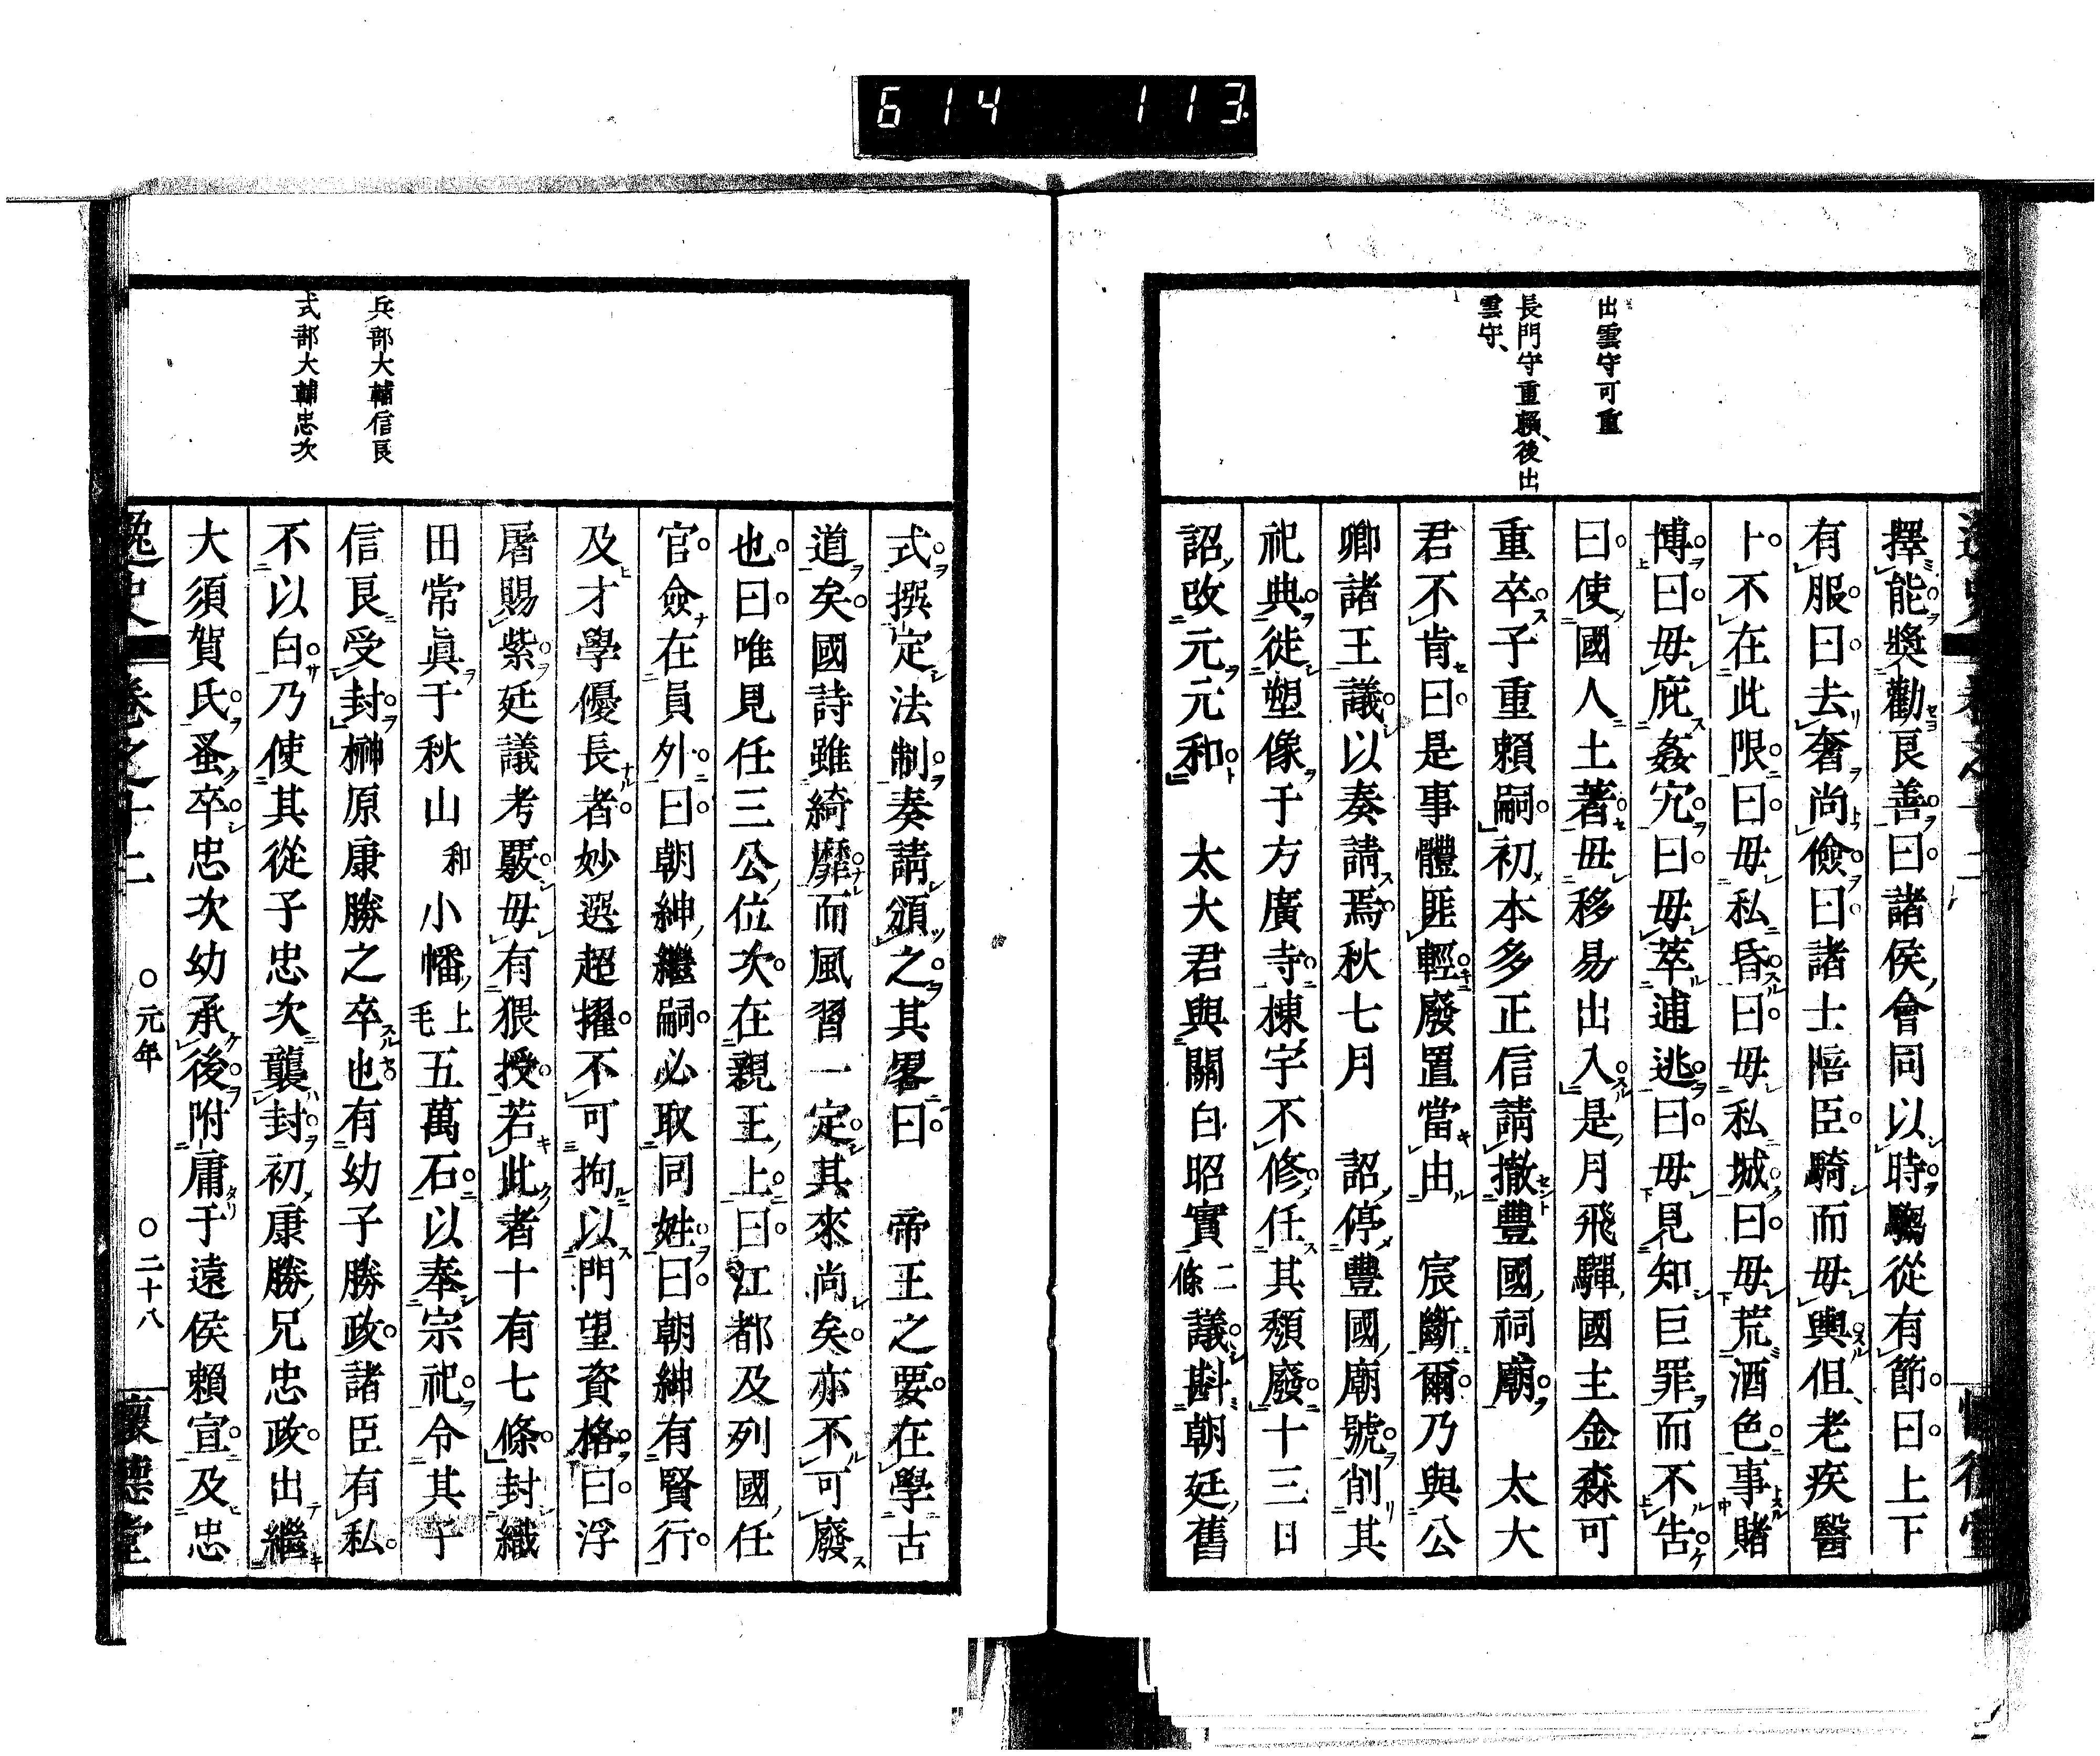 614 113
出雲守可重
長門守重賴、後出
雲守、
擇能奬勸良善曰諸侯會同以時騶從有節曰上下
有服曰去奢尚儉曰諸士陪臣騎而毋輿但老疾醫
卜不在此限曰毋私昏曰毋私城曰毋荒酒色事賭
博曰毋庇姦宄曰毋萃逋逃曰毋見知巨罪而不告
曰使國人土著毋移易出入是月飛驒國主金森可
重卒子重賴嗣初本多正信請撤豐國祠廟 太大
君不肯曰是事體匪輕廢置當由 宸斷爾乃與公
卿諸王議以奏請焉秋七月 詔停豐國廟號削其
祀典徙塑像于方廣寺棟宇不修任其頽廢十三日
詔改元元和 太大君與關白昭實二條議斟朝廷舊
兵部大輔信良
式部大輔忠次
式撰定法制奏請頒之其畧曰 帝王之要在學古
道矣國詩雖綺靡而風習一定其來尚矣亦不可廢
也曰唯見任三公位次在親王上曰江都及列國任
官僉在員外曰朝紳繼嗣必取同姓曰朝紳有賢行
及才學優長者妙選超擢不可拘以門望資格曰浮
屠賜紫延議考覈毋有猥授若此者十有七條封織
田常眞于秋山和小幡上毛五萬石以奉宗祀令其子
信良受封榊原康勝之卒也有幼子勝政諸臣有私
不以白乃使其從子忠次襲封初康勝兄忠政出繼
大須賀氏蚤卒忠次幼承後附庸于遠侯賴宣及忠
逸史 卷之十二 ○元年 ○二十八 懷德堂